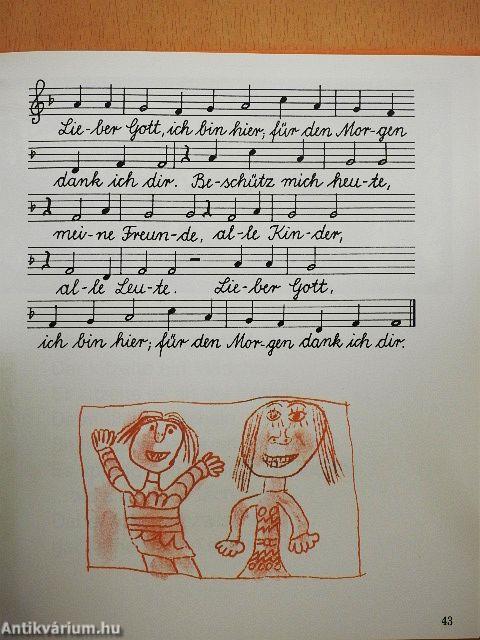 Lie-ber Gott, ich bin hier; für den Mor-gen
dank ich dir. Be-schütz mich heu-te,
mei-ne Freun-de, al-le Kin-der,
al-le Leu-te. Lie-ber Gott,
ich bin hier; für den Mor-gen dank ich dir.
43
Antikvárium.hu